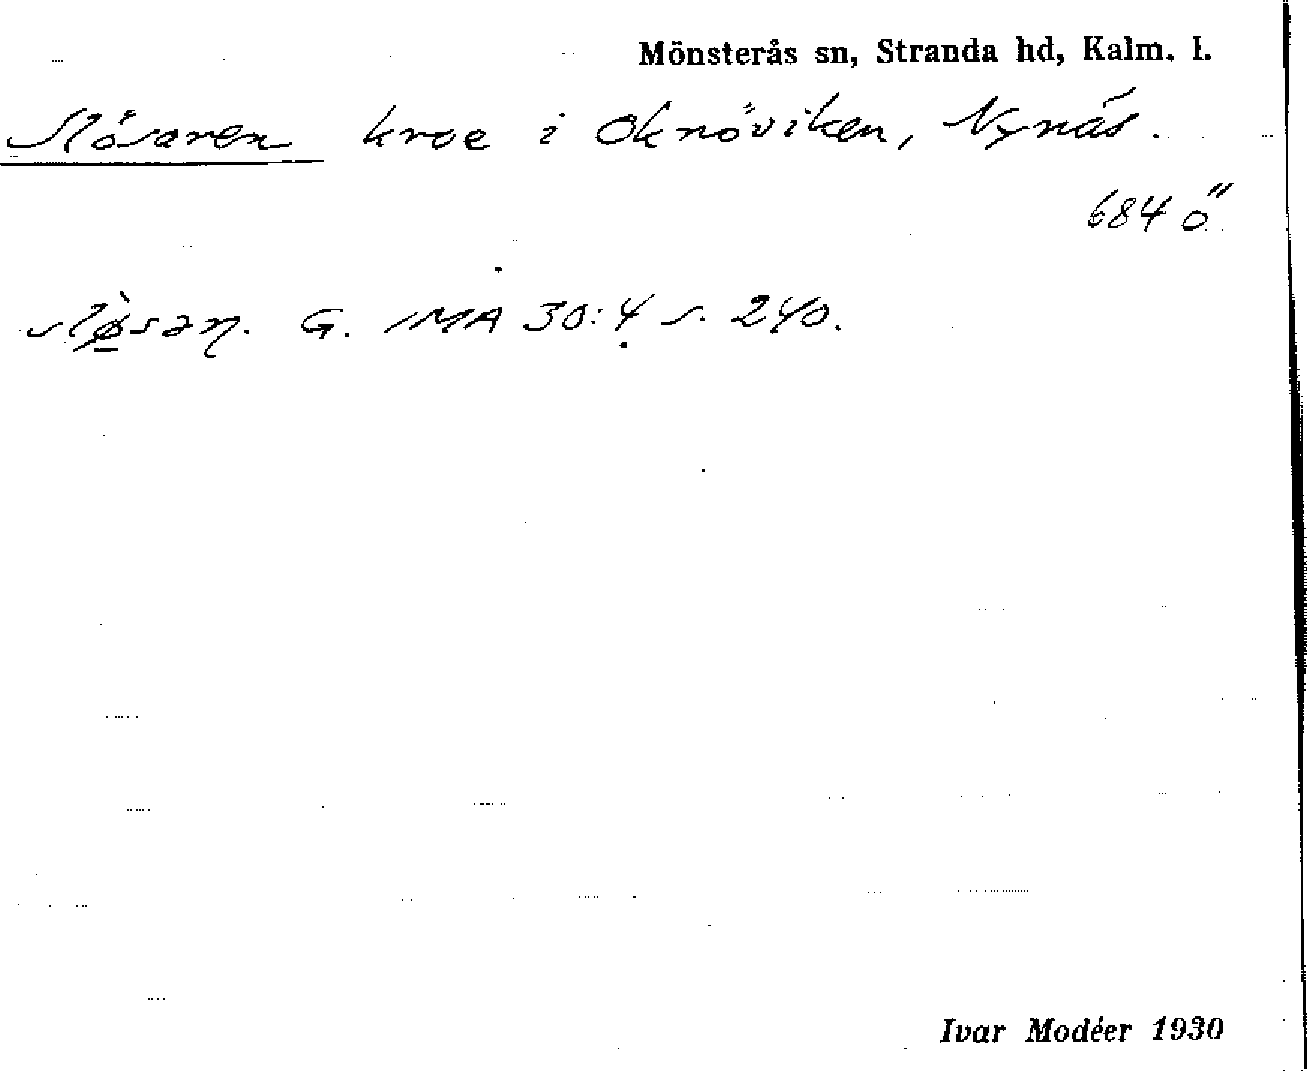 Mönsterås sn, Stranda hd, Kalm. l.
Slösaren kroe i Oknöviken, Nynäs.
684 ö
G. IMA 30:4 s. 240.
Ivar Modéer 1930